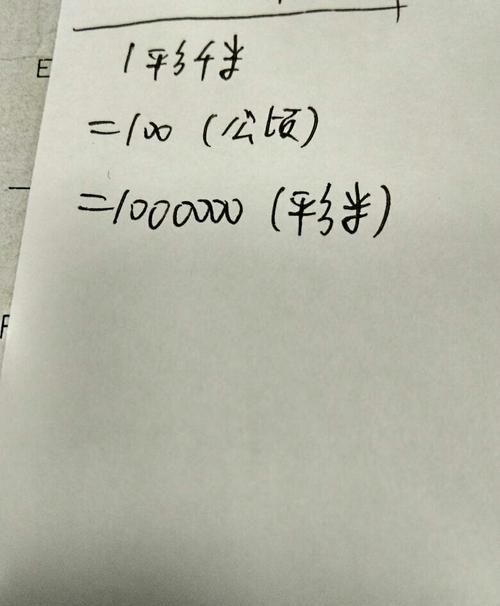 E
1平方千米
=100（公顷）
=1000000（平方米）
F